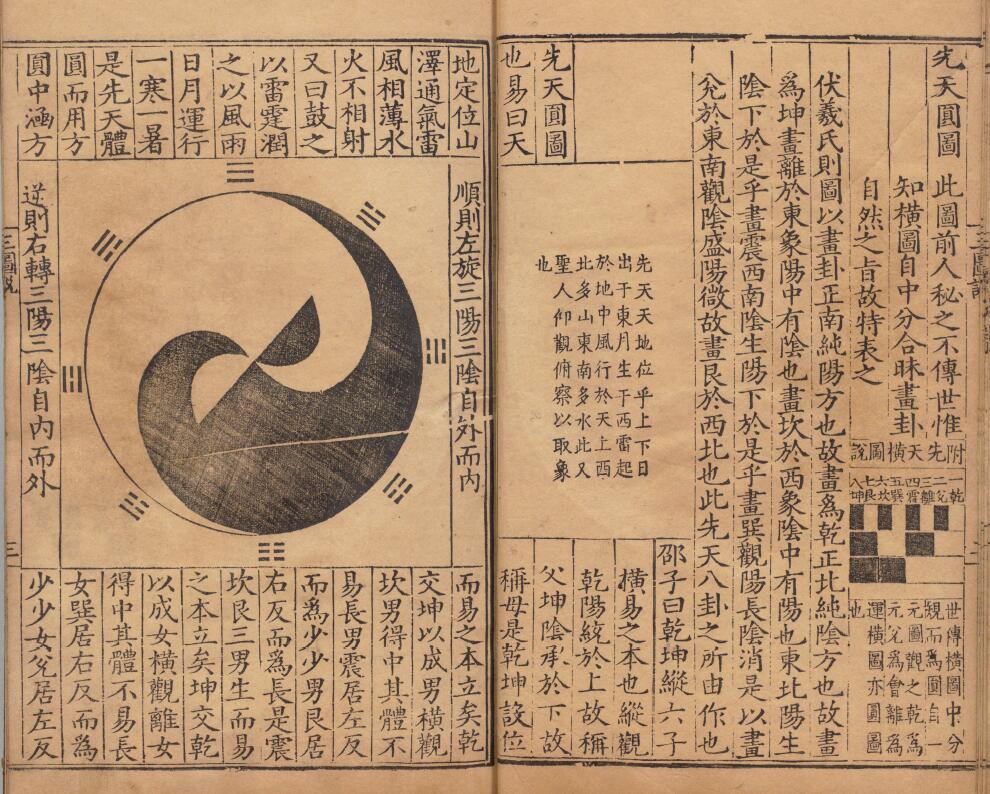 先天圓圖
此圖前人秘之不傳世惟
知橫圖自中分合昧畫卦
自然之旨故特表之
附先天橫圖說
一乾
二兌
三離
四震
五巽
六坎
七艮
八坤
世傳橫圖中分
規而爲圓自一
元圖觀之乾爲
元兌爲會離爲
運橫圖亦圓圖
也
伏羲氏則圖以畫卦正南純陽方也故畫爲乾正北純陰方也故畫
爲坤畫離於東象陽中有陰也畫坎於西象陰中有陽也東北陽生
陰下於是乎畫震西南陰生陽下於是乎畫巽觀陽長陰消是以畫
兊於東南觀陰盛陽微故畫艮於西北也此先天八卦之所由作也
先天圓圖
也易曰天
先天天地位乎上下日
出于東月生于西雷起
於地中風行於天上西
北多山東南多水此又
聖人仰觀俯察以取象
也
邵子曰乾坤縱六子
橫易之本也縱觀
乾陽統於上故稱
父坤陰承於下故
稱母是乾坤設位
地定位山
澤通氣雷
風相薄水
火不相射
又曰鼓之
以雷霆潤
之以風雨
日月運行
一寒一暑
是先天體
圓而用方
圓中涵方
順則左旋三陽三陰自外而內
逆則右轉三陽三陰自內而外
而易之本立矣乾
交坤以成男橫觀
坎男得中其體不
易長男震居左反
而爲少少男艮居
右反而爲長是震
坎艮三男生而易
之本立矣坤交乾
以成女橫觀離女
得中其體不易長
女巽居右反而爲
少少女兊居左反
三